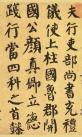 行吏部尚書充禮
儀使上柱國魯郡開
國公顏真卿立德
踐行當四科之